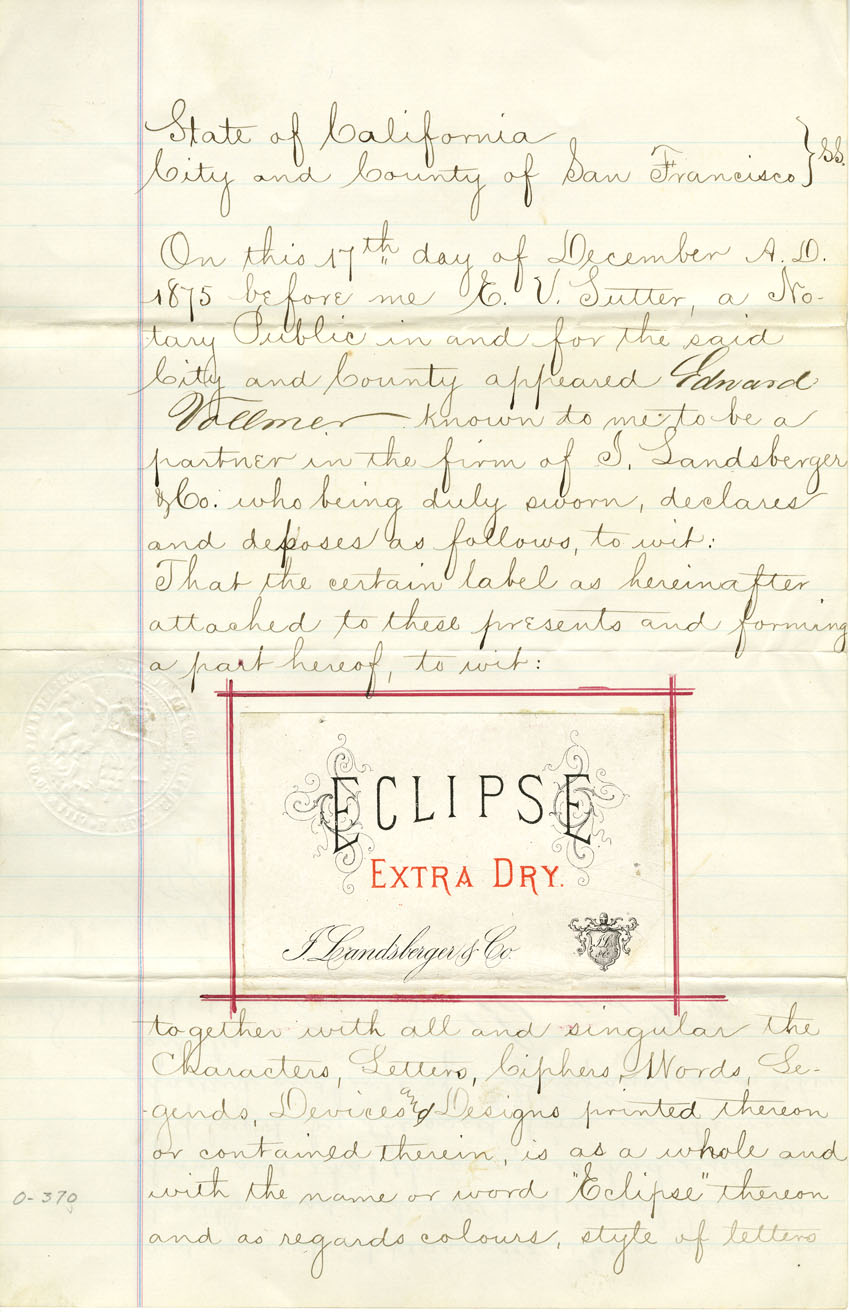 State of California
City and County of San Francisco } SS.
On this 17th day of December A. D.
1875 before me E. V. Sutter, a No-
tary Public in and for the said
City and County appeared Edward
Vollmer known to me to be a
partner in the firm of I. Landsberger
& Co. who being duly sworn, declares
and deposes as follows, to wit:
That the certain label as hereinafter
attached to these presents and forming
a part hereof, to wit:
ECLIPSE
EXTRA DRY.
I Landsberger & Co.
together with all and singular the
Characters, Letters, Ciphers, Words, Le-
-gends, Devices and Designs printed thereon
or contained therein, is as a whole and
with the name or word "Eclipse" thereon
0-370
and as regards colours, style of letters